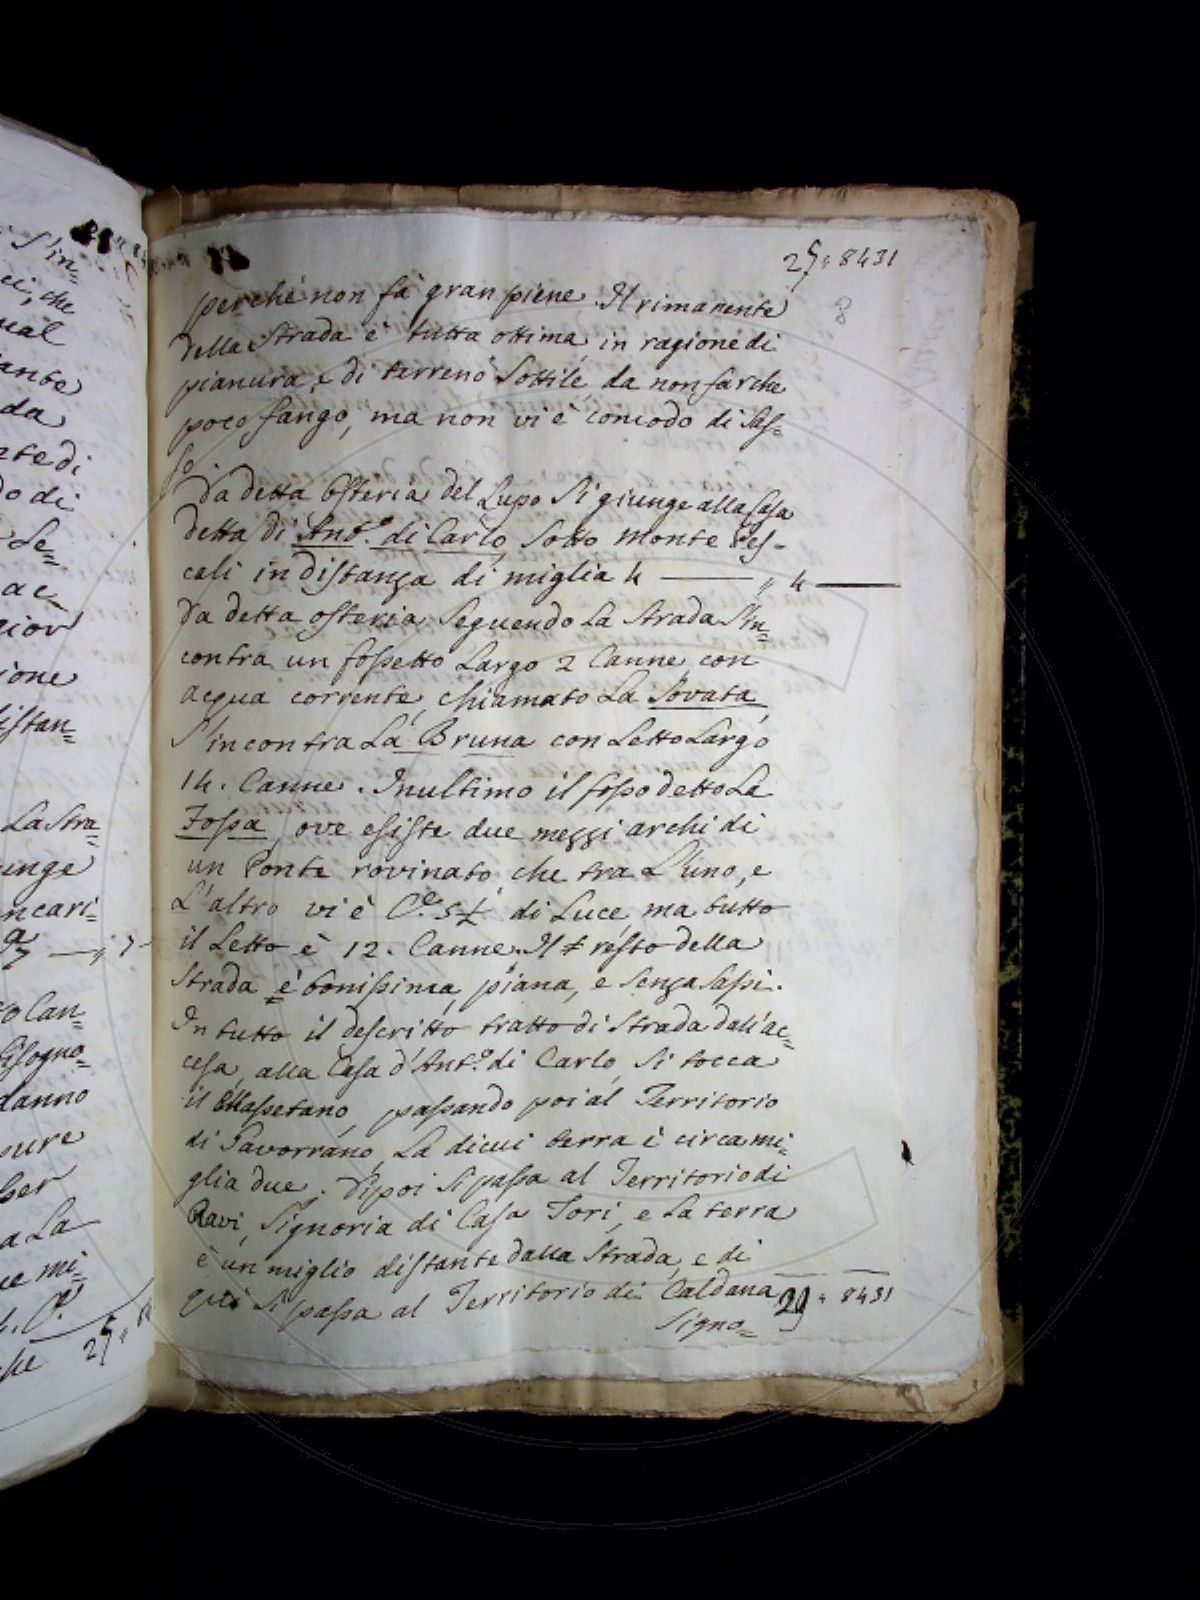 25,, 8431
8
perche non fà gran piene. Il rimanente
della Strada è tutta ottima in ragione di
pianura, e di terreno Sottile, da non far che
poco fango, ma non vi è comodo di Sas=
so.
Da detta Osteria del Lupo Si giunge alla Casa
detta di Ant.o di Carlo, Sotto Monte Pes-
cali in distanza di miglia 4 — ,, 4 —
Da detta osteria Seguendo La Strada S'in=
contra un fossetto Largo 2 Canne, con
acqua corrente, chiamato La Sovata,
S'incontra La Bruna con Letto Largo
14. Canne. In ultimo il fosso detto La
Fossa, ove esiste due mezzi archi di
un Ponte rovinato che tra L'uno, e
L'altro vi è C.e 5½ di Luce, ma tutto
il Letto è 12. Canne. Il resto della
Strada è bonissima, piana, e Senza Sassi.
In tutto il descritto tratto di Strada dall'ac=
cesa, alla Casa d'Ant.o di Carlo, Si tocca
il Massetano, passando poi al Territorio
di Gavorrano, La di cui terra è circa mi=
glia due. Dipoi Si passa al Territorio di
Ravi, Signoria di Casa Tori, e La terra
è un miglio distante dalla Strada, e di
qui Si passa al Territorio di Caldana 29,, 8431
Signo=
S'in=
che
ual
ante
da
nte di
do di
Se=
ac=
gior
ione
istan=
La Stra=
unge
ncari=
to Can=
bisogno=
danno
pure
per
a La
ue mi=
che 25,,